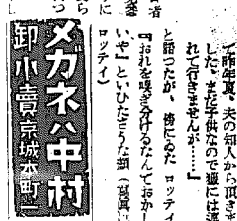 で昨年夏、夫の知人から頂き
した、まだ子供なので獵には連
れて行きませんが……』
と語つたが、傍にゐた ロッテイ
『おれを嗅ぎ分けるなんておかし
いや』といひたさうな顔（寫眞は
ロッテイ）
メガネハ中村
卸小賣 京城本町二